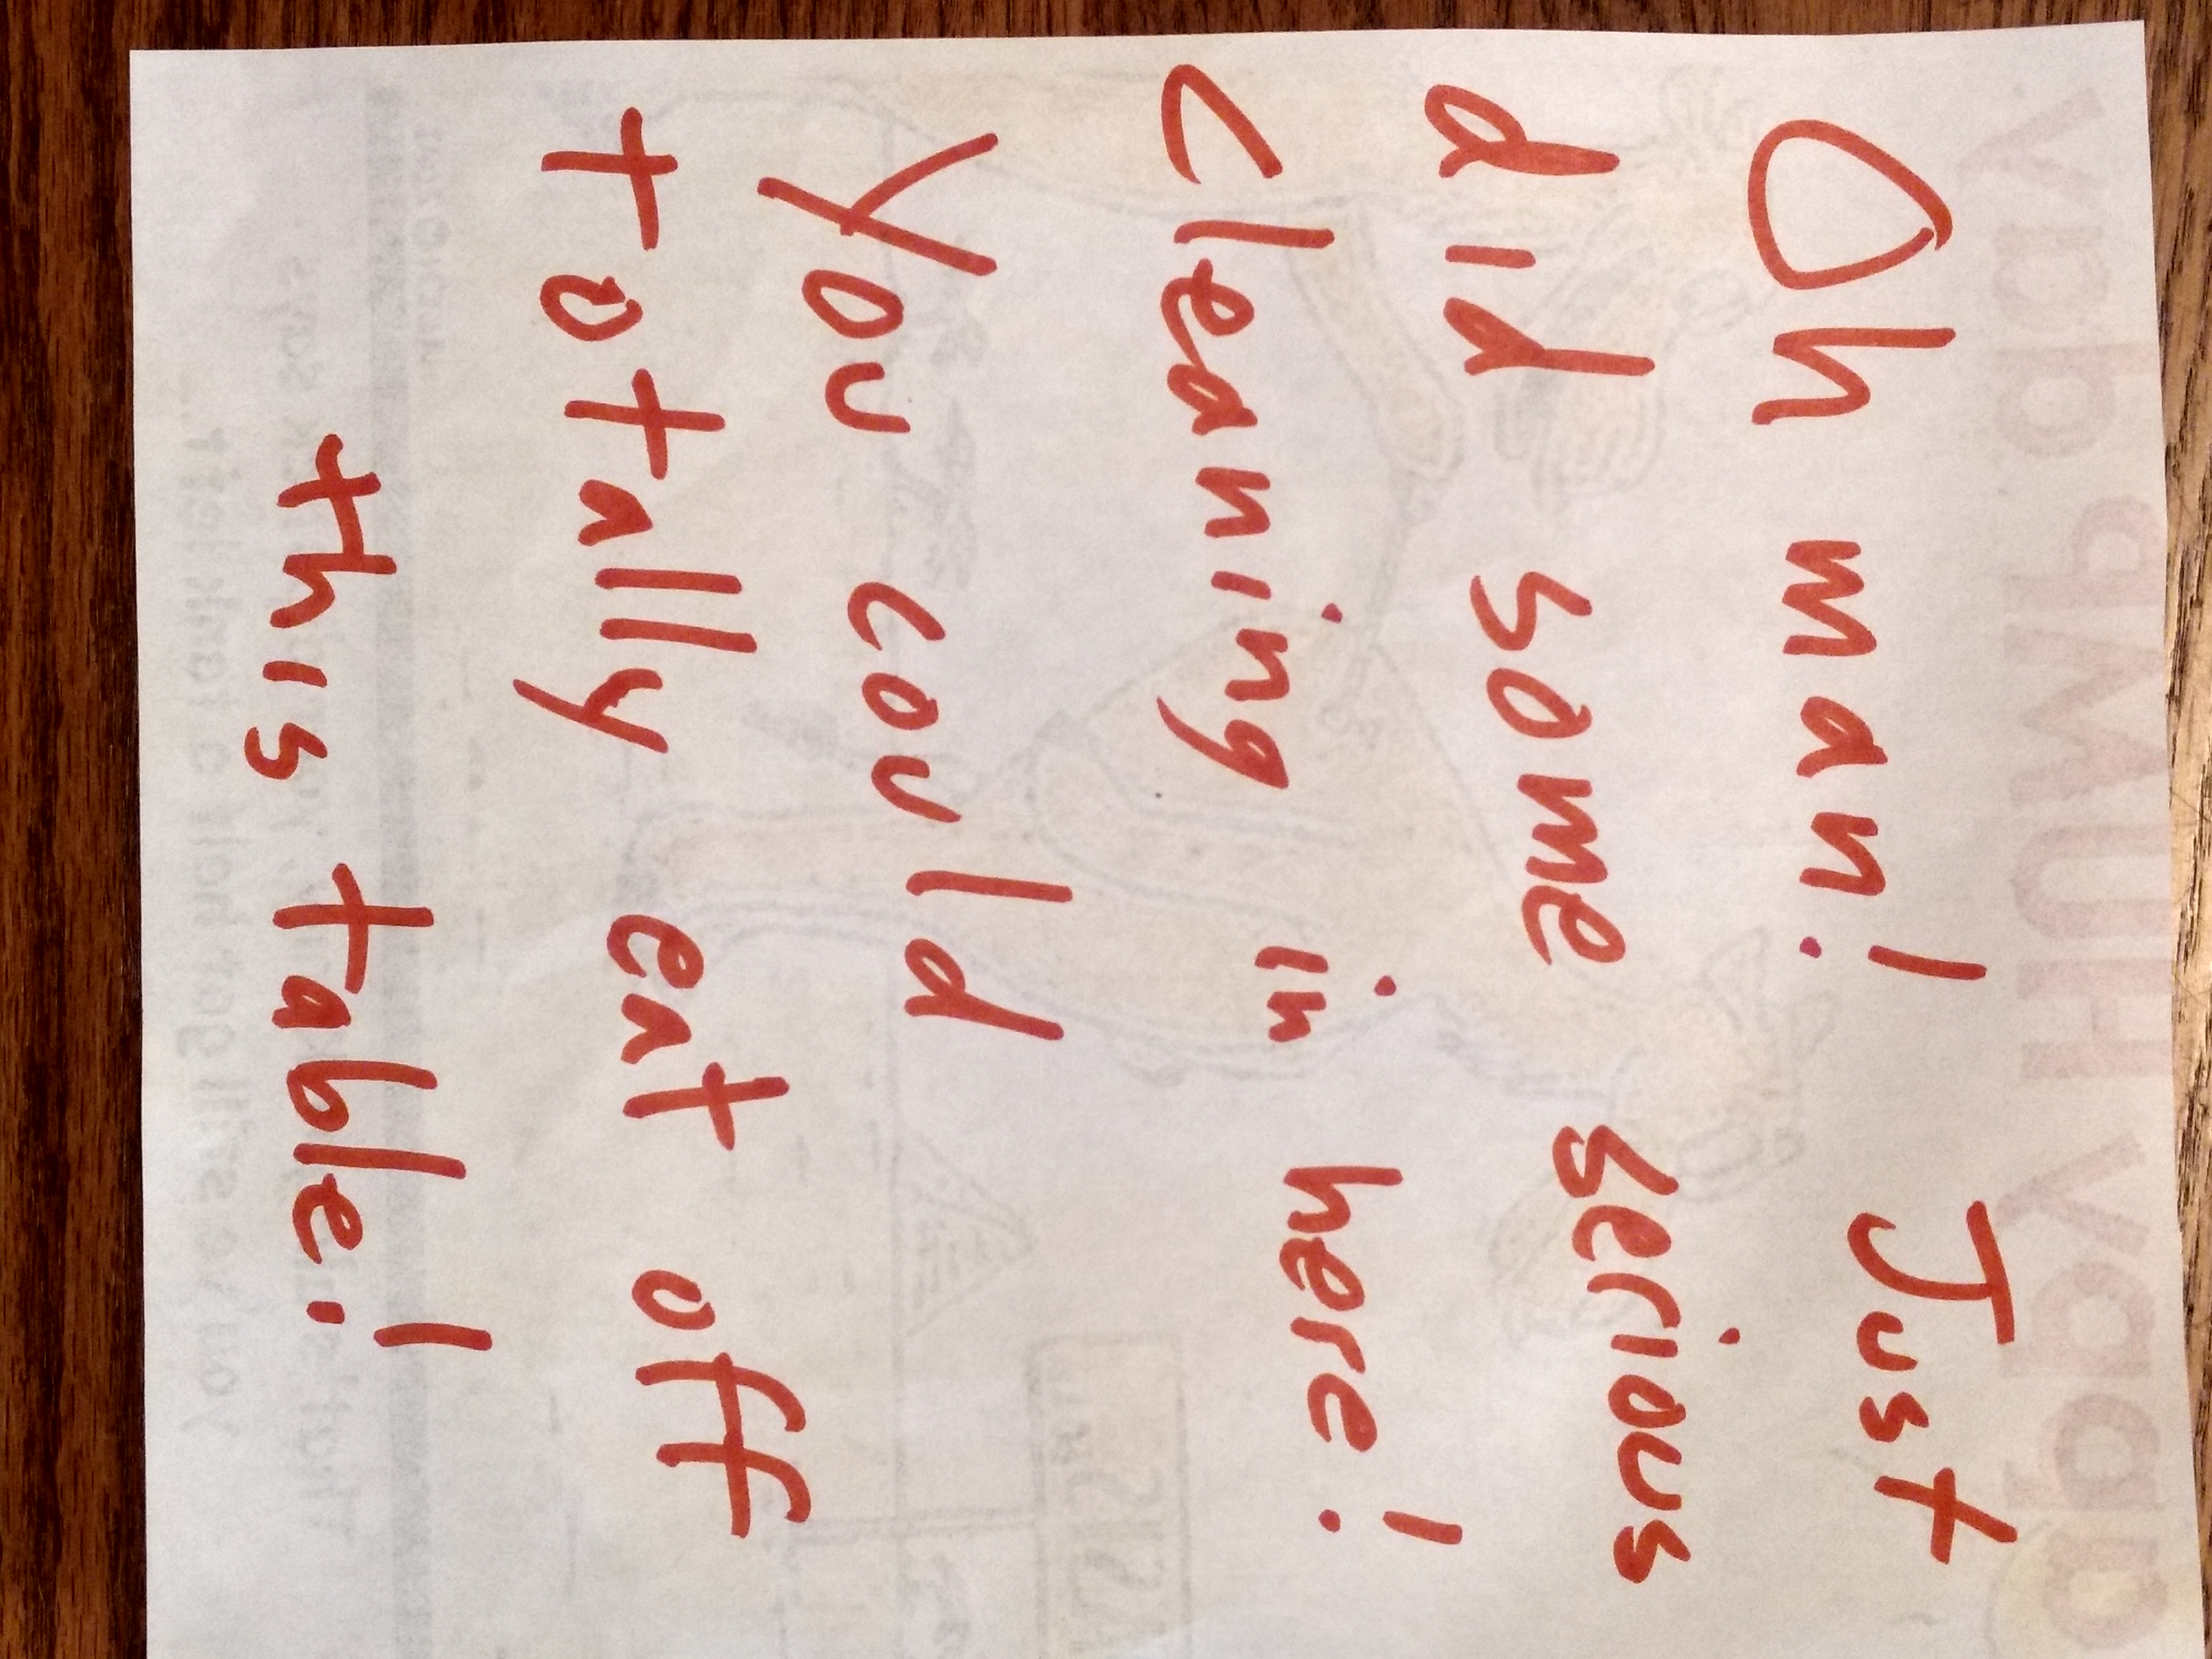 Oh man! Just
did some serious
cleaning in here!
You could
totally eat off
this table!